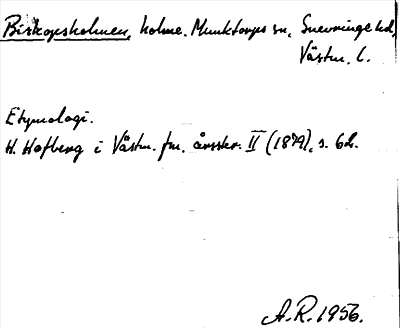 Biskopsholmen, holme. Munktorps sn, Snevringe hd,
Västm. l.
Etymologi.
H. Hofberg i Västm. fm. årsskr. II (1879), s. 62.
A.R. 1956.